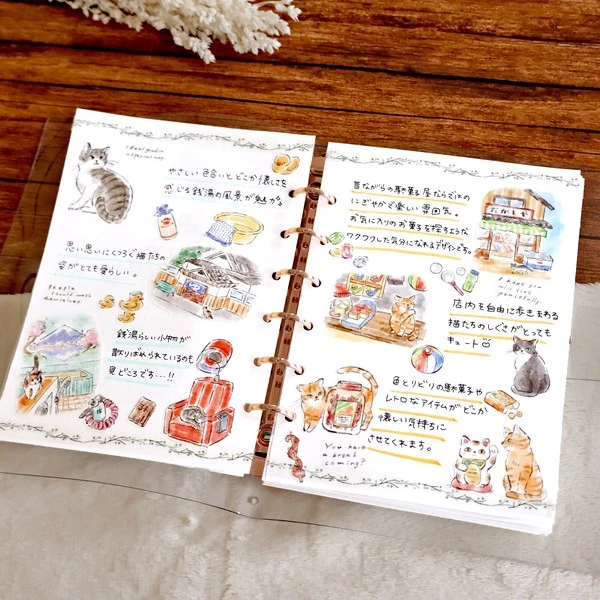 やさしい色合いとどこか懐しさを
感じる銭湯の風景が魅力。
思い思いにくつろぐ猫たちの
姿がとても愛らしい。
people
銭湯らしい小物が
散りばめられているのも
見どころです…!!
昔ながらの駄菓子屋ならではの
にぎやかで楽しい雰囲気。
お気に入りのお菓子を探すような
ワクワクした気分になれるデザインです。
だがしや
I hope you
will live
peacefully.
店内を自由に歩きまわる
猫たちのしぐさがとっても
キュート
色とりどりの駄菓子や
レトロなアイテムがどこか
懐しい気持ちに
させてくれます。
You have
a break
coming!